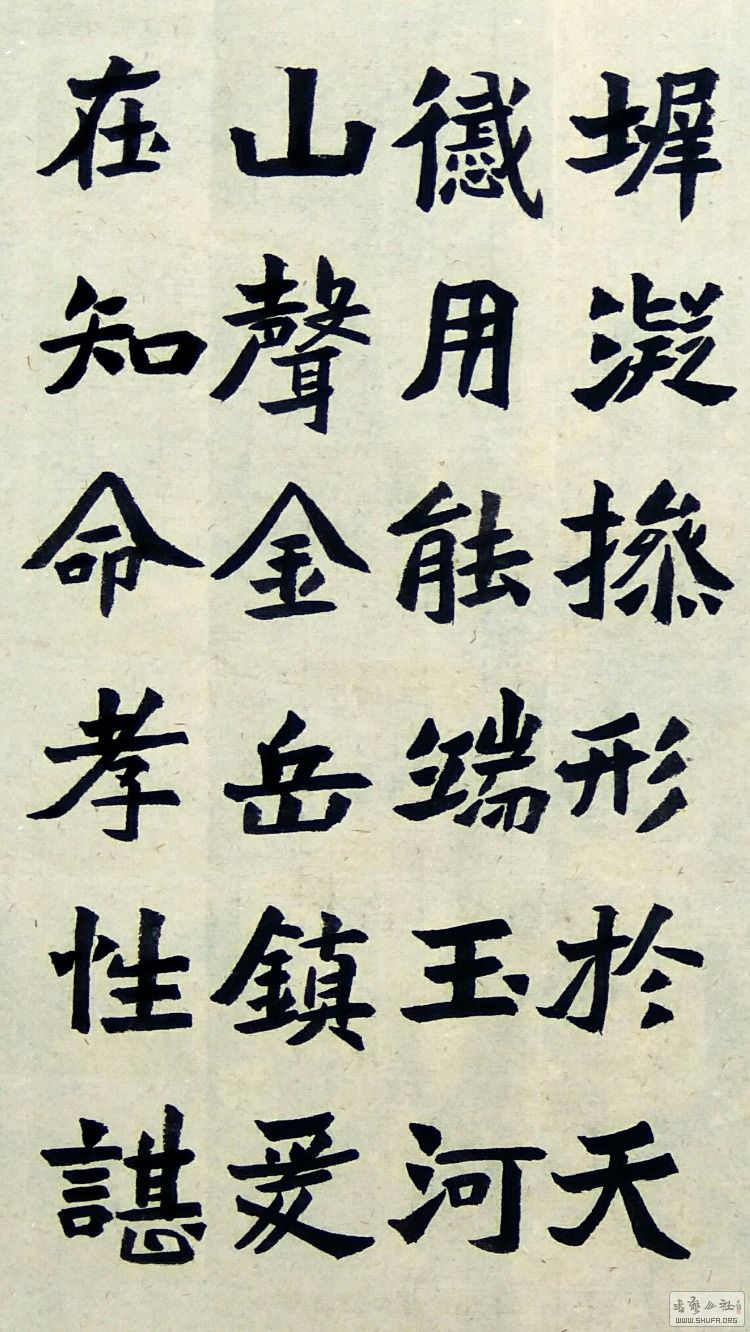 墀凝操形於天
用能端玉河
山聲金岳鎮爰
在知命孝性諶
書藝公社
WWW.SHUFA.ORG